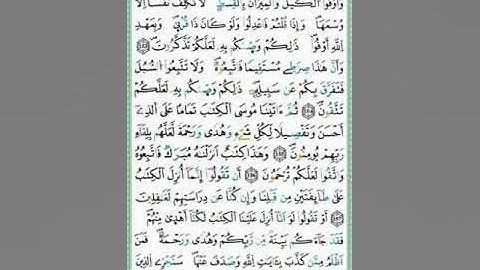 وَأَوْفُوا الْكَيْلَ وَالْمِيزَانَ بِالْقِسْطِ لَا نُكَلِّفُ نَفْسًا اِلَّا
وُسْعَهَا وَإِذَا قُلْتُمْ فَاعْدِلُوا وَلَوْ كَانَ ذَا قُرْبَىٰ وَبِعَهْدِ
اِللَّهِ أَوْفُوا ذَٰلِكُمْ وَصَّيٰكُم بِهِ لَعَلَّكُمْ تَذَّكَّرُونَ
وَأَنَّ هَٰذَا صِرَٰطِے مُسْتَقِيمًا فَاتَّبِعُوهُ وَلَا تَتَّبِعُوا السُّبُلَ
فَتَفَرَّقَ بِكُمْ عَن سَبِيلِهِ ذَٰلِكُمْ وَصَّيٰكُم بِهِ لَعَلَّكُمْ
تَتَّقُونَ ثُمَّ ءَاتَيْنَا مُوسَى الْكِتَٰبَ تَمَامًا عَلَى الَّذِے
أَحْسَنَ وَتَفْصِيلًا لِّكُلِّ شَےْءٍ وَهُدًى وَرَحْمَةً لَّعَلَّهُم بِلِقَاءِ
رَبِّهِمْ يُومِنُونَ وَهَٰذَا كِتَٰبٌ أَنزَلْنَٰهُ مُبَٰرَكٌ فَاتَّبِعُوهُ
وَاتَّقُوا لَعَلَّكُمْ تُرْحَمُونَ أَن تَقُولُوا إِنَّمَا أُنزِلَ الْكِتَٰبُ
عَلَىٰ طَائِفَتَيْنِ مِن قَبْلِنَا وَإِن كُنَّا عَن دِرَاسَتِهِمْ لَغَٰفِلِينَ
أَوْ تَقُولُوا لَوَ اَنَّا أُنزِلَ عَلَيْنَا الْكِتَٰبُ لَكُنَّا أَهْدَىٰ مِنْهُمْ
فَقَدْ جَاءَكُم بَيِّنَةٌ مِّن رَّبِّكُمْ وَهُدًى وَرَحْمَةٌ فَمَنَ
اَظْلَمُ مِمَّن كَذَّبَ بِـَٔايَٰتِ اللَّهِ وَصَدَفَ عَنْهَا سَنَجْزِے الَّذِينَ